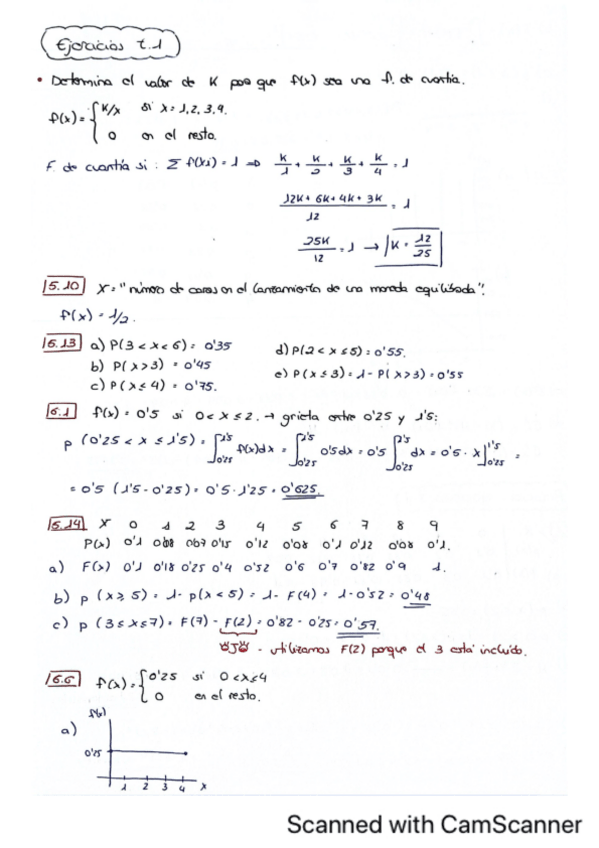 Ejercicios t.1
• Determina el valor de K para que f(x) sea una f. de cuantía.
f(x) = { K/x si x = 1, 2, 3, 4.
0 en el resto.
F. de cuantía si : Σ f(xi) = 1 ⇒ K/1 + K/2 + K/3 + K/4 = 1
12K + 6K + 4K + 3K / 12 = 1
25K / 12 = 1 → K = 12/25
5.10 X = "número de caras en el lanzamiento de una moneda equilibrada".
f(x) = 1/2.
5.13 a) P(3 < x < 6) = 0'35 d) P(2 < x ≤ 5) = 0'55.
b) P(x > 3) = 0'45 e) P(x ≤ 3) = 1 - P(x > 3) = 0'55
c) P(x ≤ 4) = 0'75.
6.1 f(x) = 0'5 si 0 < x ≤ 2. → grieta entre 0'25 y 1'5:
P (0'25 < x ≤ 1'5) = ∫0'25 1'5 f(x)dx = ∫0'25 1'5 0'5 dx = 0'5 ∫0'25 1'5 dx = 0'5 · x |0'25 1'5 =
= 0'5 (1'5 - 0'25) = 0'5 · 1'25 = 0'625.
5.14 X 0 1 2 3 4 5 6 7 8 9
P(x) 0'1 0'08 0'07 0'15 0'12 0'08 0'1 0'12 0'08 0'1.
a) F(x) 0'1 0'18 0'25 0'4 0'52 0'6 0'7 0'82 0'9 1.
b) p (x ≥ 5) = 1 - p(x < 5) = 1 - F(4) = 1 - 0'52 = 0'48
c) p (3 ≤ x ≤ 7) = F(7) - F(2) = 0'82 - 0'25 = 0'57.
OJO - utilizamos F(2) porque el 3 está incluido.
6.6 f(x) = { 0'25 si 0 < x ≤ 4
0 en el resto.
a) f(x)
0'25
1 2 3 4 x
Scanned with CamScanner